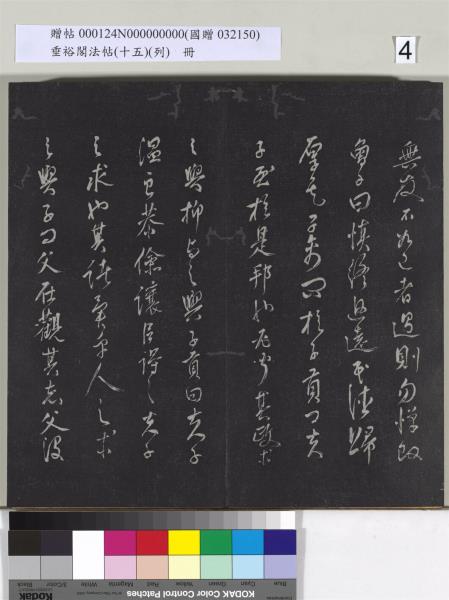 贈帖 000124N000000000(國贈 032150)
垂裕閣法帖(十五)(列) 冊
4
無友不如己者過則勿憚改
曾子曰慎終追遠民德歸
厚矣子禽問於子貢曰夫
子至於是邦也必聞其政求
之與抑與之與子貢曰夫子
溫良恭儉讓以得之夫子
之求也其諸異乎人之求
之與子曰父在觀其志父沒
KODAK Color Control Patches
Blue Cyan Green Yellow Red Magenta White 3/Color Black